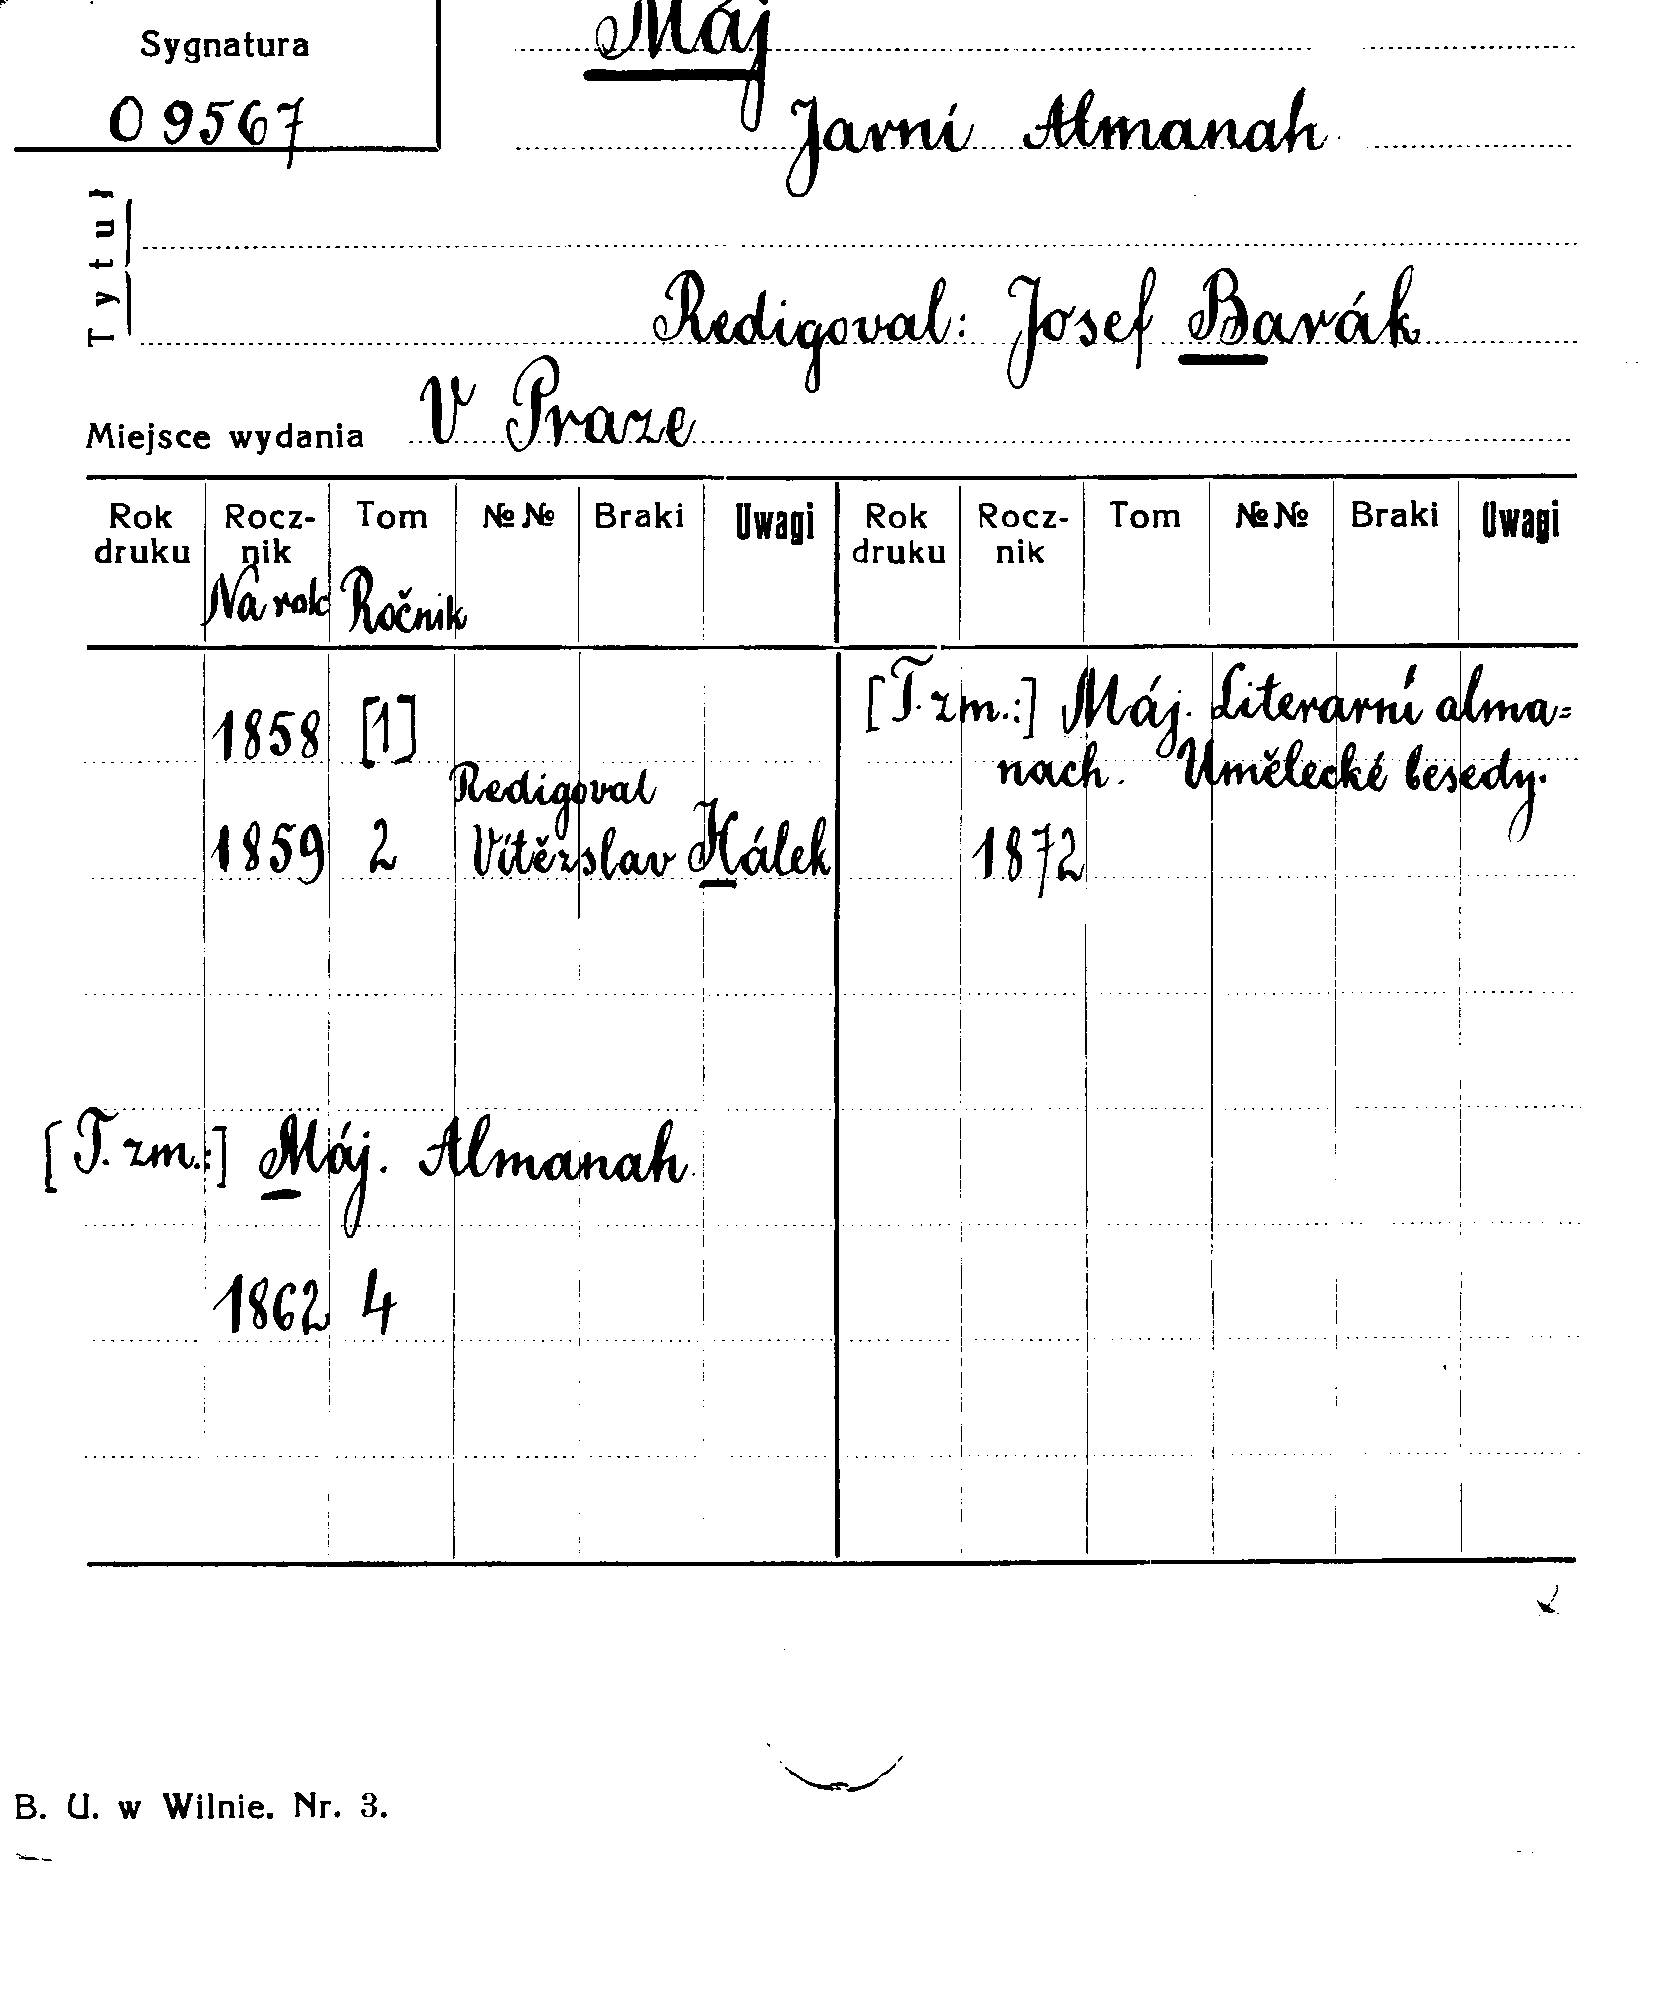 Sygnatura
O 9567
Máj
Jarní Almanah
Tytuł
Redigoval: Josef Barák
Miejsce wydania V Praze
Rok druku Rocz-nik Tom №№ Braki Uwagi Rok druku Rocz-nik Tom №№ Braki Uwagi
Na rok Ročnik
1858 [1]
Redigoval
1859 2 Vítězslav Hálek
[T. zm.:] Máj. Almanah
1862 4
[T. zm.:] Máj. Literarní alma=
nach. Umělecké besedy.
1872
B. U. w Wilnie. Nr. 3.